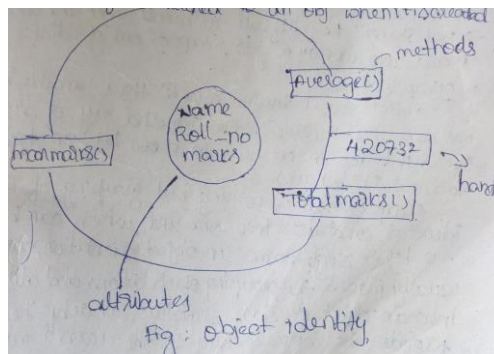 to an obj when it is created
methods
Average()
Name
Roll no
marks
420732
Totalmarks()
attributes
Fig: object identity